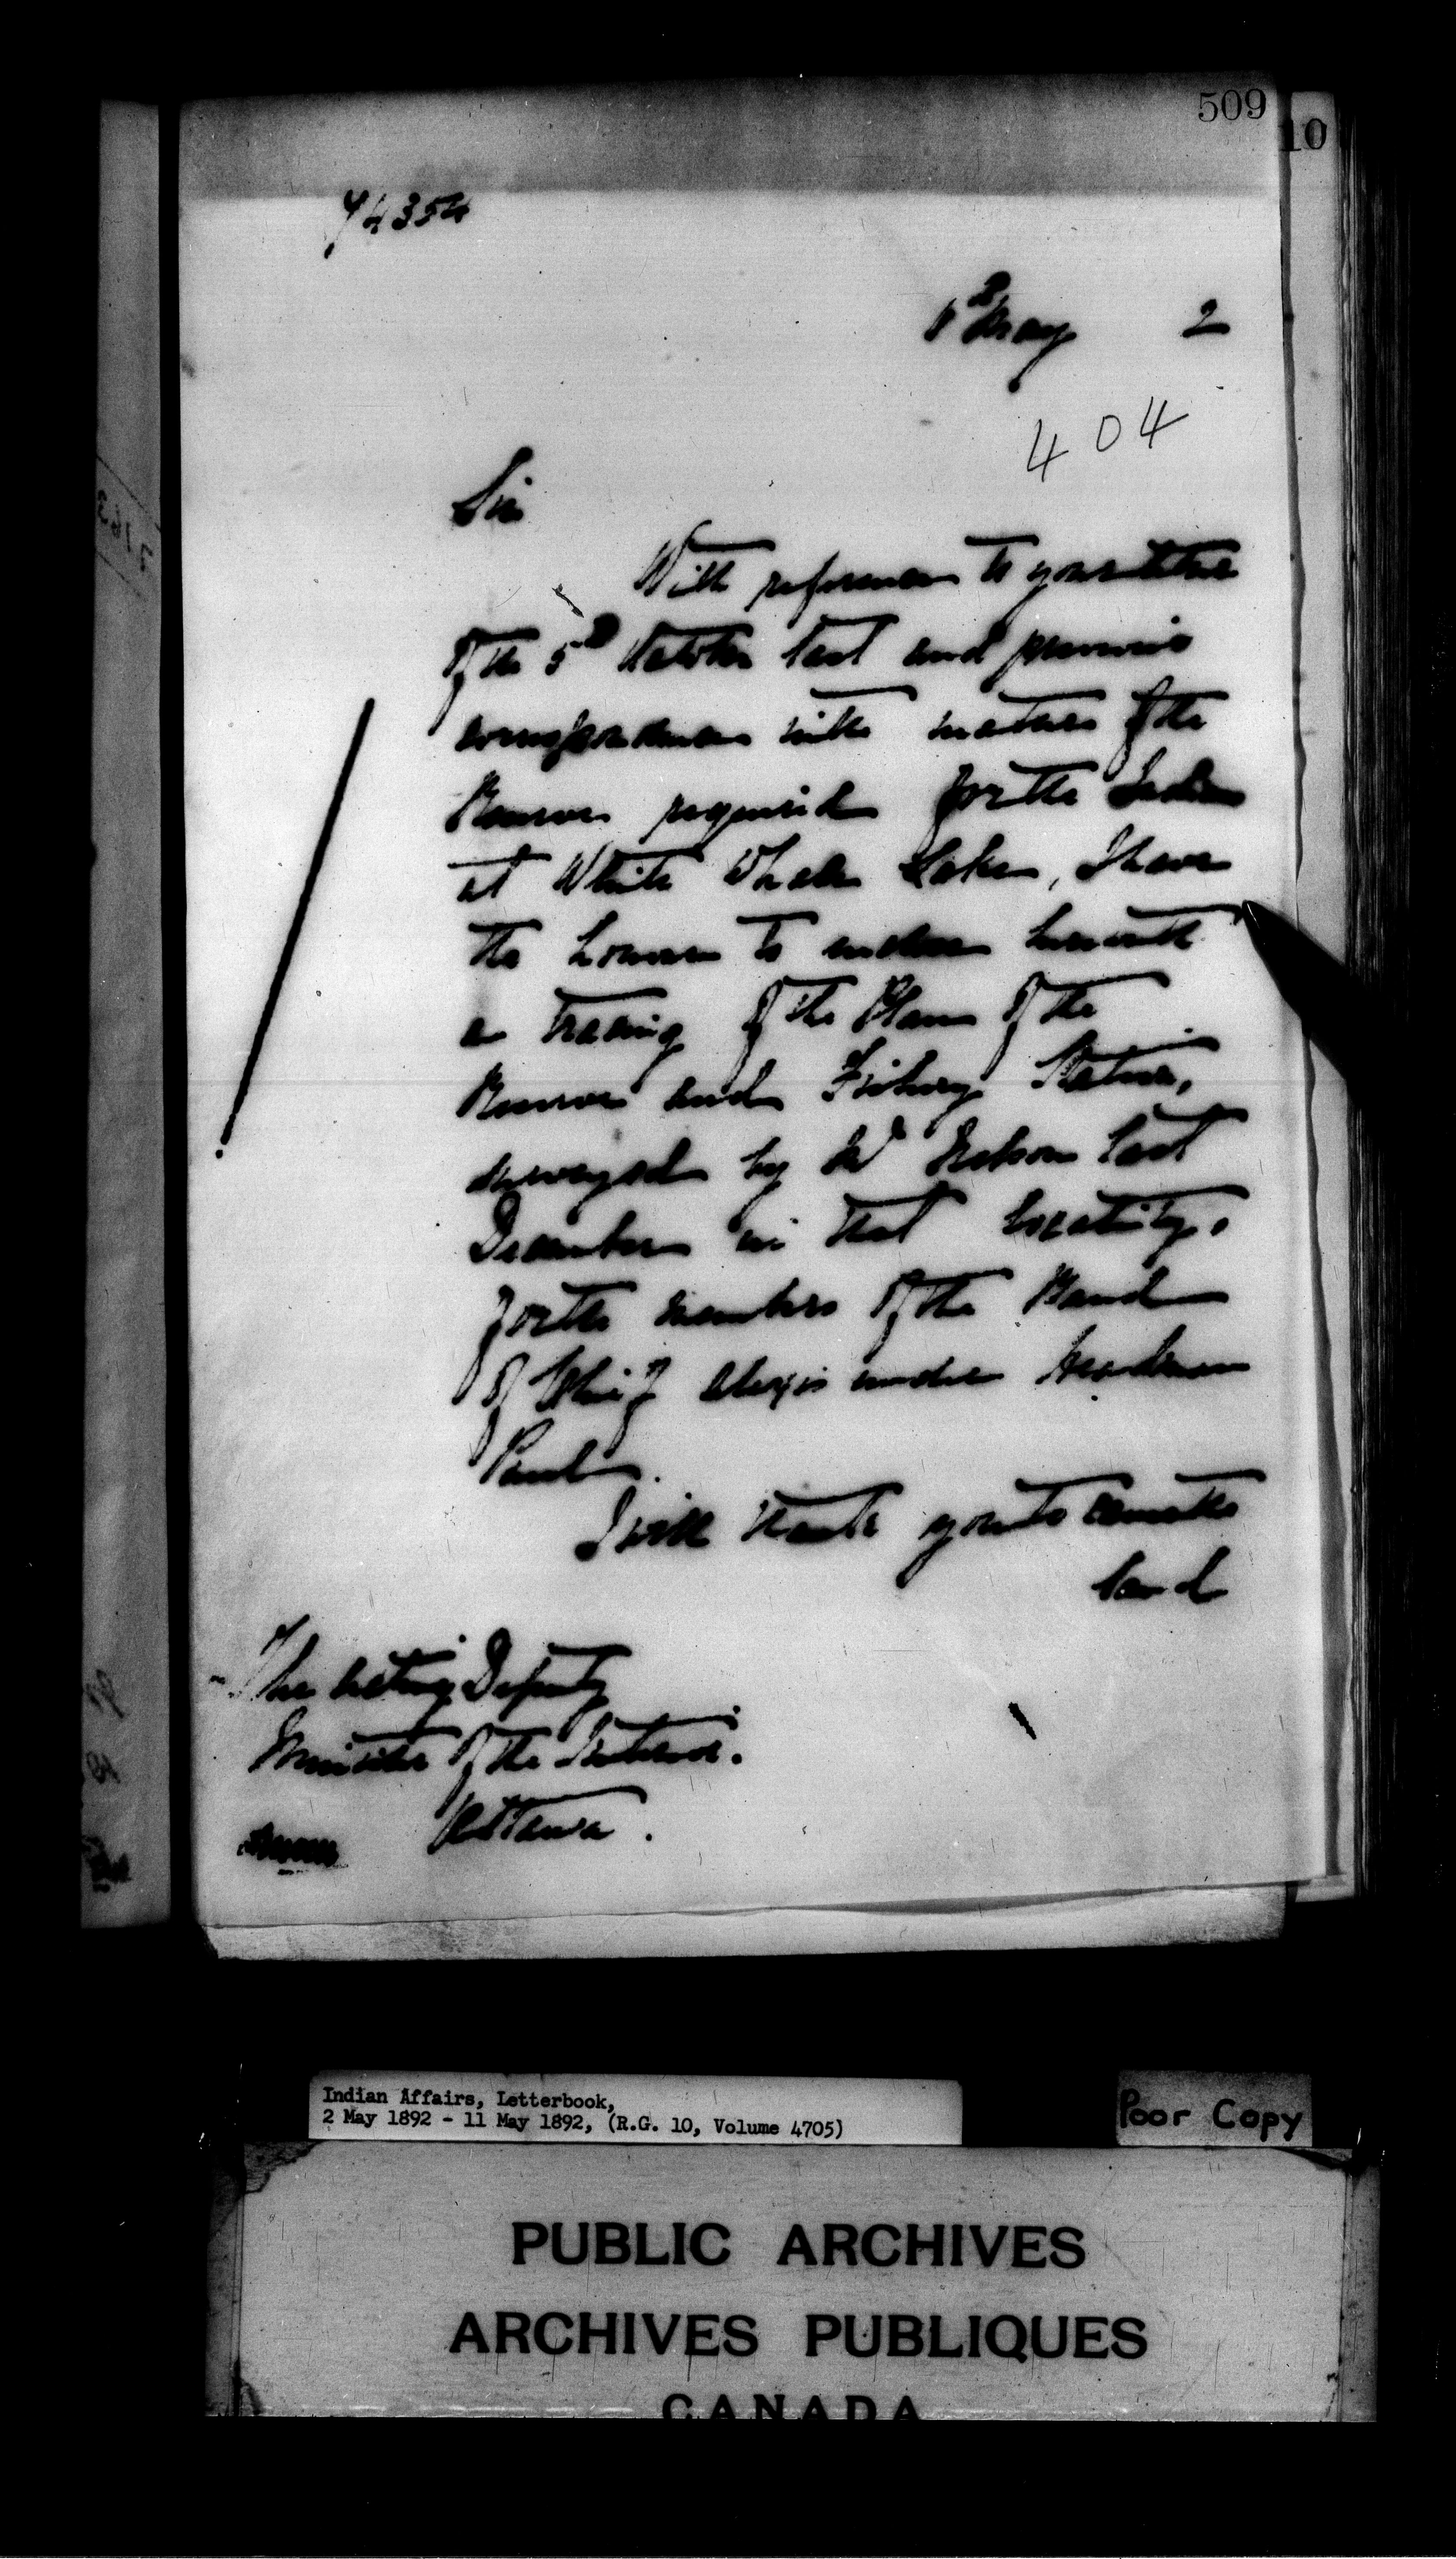 509
10
74354
May 2
404
Sir
With reference to your letter
of the 5th October last and previous
correspondence in the matter of the
Reserve required for the Indians
at White Whale Lake, I have
the honour to enclose herewith
a tracing of the Plan of the
Reserve and Fishing Station,
surveyed by Mr Nelson last
December in that locality,
for the members of the Band
of Chief Alexis under Headman
Paul.
I will thank you to
land
The Acting Deputy
Minister of the Interior.
Ottawa.
Indian Affairs, Letterbook,
2 May 1892 - 11 May 1892, (R.G. 10, Volume 4705)
Poor Copy
PUBLIC ARCHIVES
ARCHIVES PUBLIQUES
CANADA